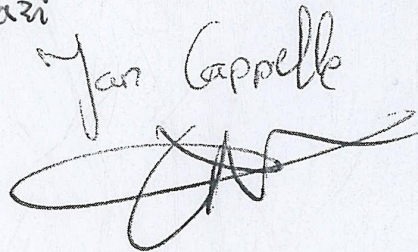 Jan Cappelle